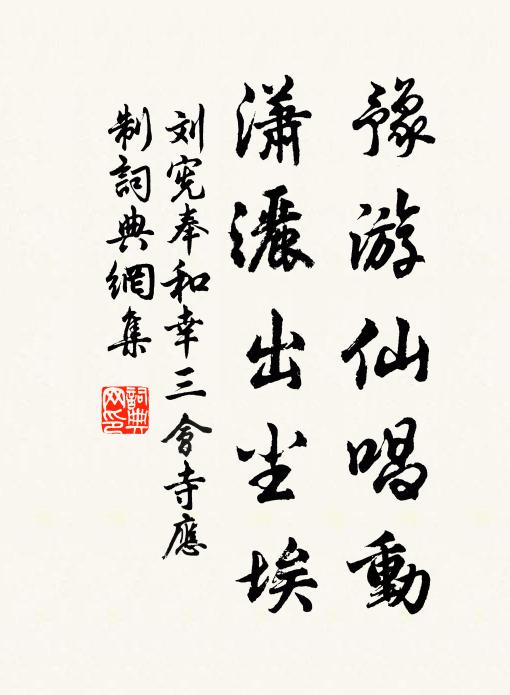 豫游仙唱動
瀟灑出尘埃
刘宪奉和幸三會寺應
制詞典網集
詞典
网印